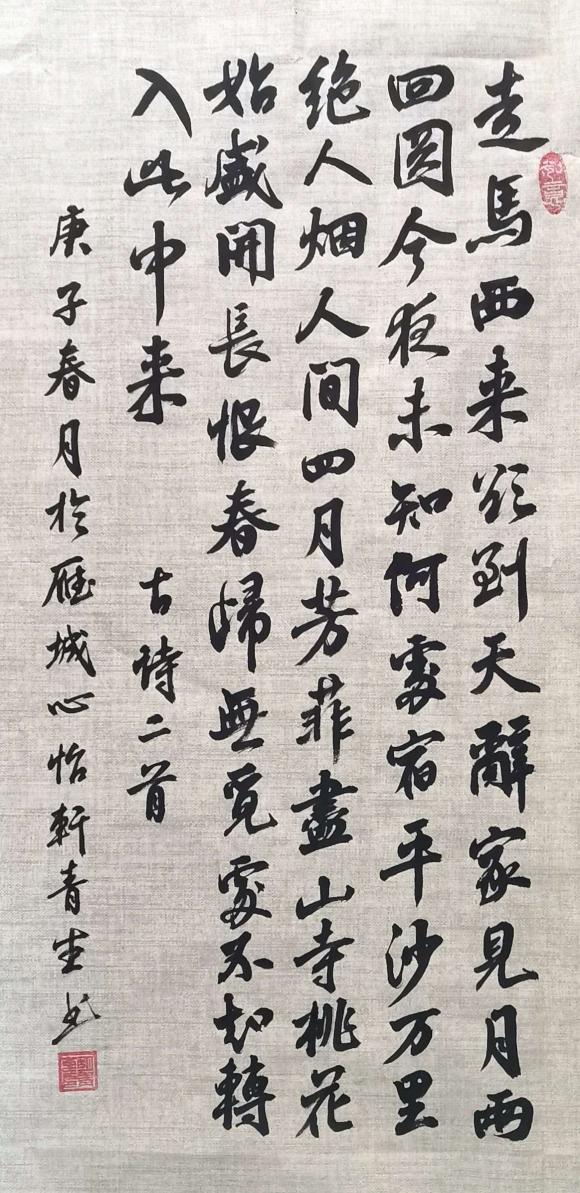 走馬西来欲到天辭家見月两
回圆今夜未知何處宿平沙万里
绝人烟人间四月芳菲盡山寺桃花
始盛開長恨春歸無覓處不知轉
入此中来 古诗二首
庚子春月於雁城心怡軒青生书